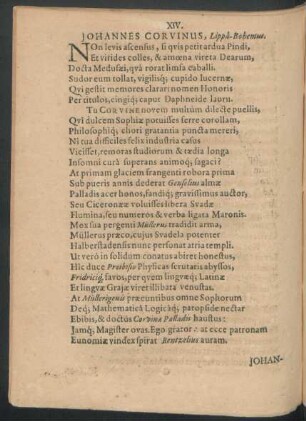 XIV.
JOHANNES CORVINUS, Lippâ-Bohemus.
NOn levis ascensus, si quis petit ardua Pindi,
Et virides colles, & amœna vireta Dearum,
Docta Medusæi, quà rorat limfa caballi.
Sudor eum tollat, vigilisq; cupido lucernæ,
Qvi gestit memores clarari nomen Honoris
Per titulos, cingiq; caput Daphneide lauru.
Tu CORVINE novem multùm dilecte puellis,
Qvi dulcem Sophiæ potuisses ferre corollam,
Philosophiq; chori gratantia puncta mereri,
Ni tua difficiles felix industria casus
Vicisset, remoras studiorum & tædia longa
Insomni curâ superans animoq; sagaci?
At primam glaciem frangenti robora prima
Sub pueris annis dederat Genselius almæ
Palladis acer honos, fandiq; gravissimus auctor,
Seu Ciceronæ voluisses libera Svadæ
Flumina, seu numeros & verba ligata Maronis.
Mox sua pergenti Müllerus tradidit arma,
Müllerus præco, cujus Svadela potenter
Halberstadensi nunc personat atria templi.
Ut verò in solidum conatus abiret honestus,
Hic duce Preibisio Physicas scrutaris abyssos,
Fridriciq; favos, per qvem lingvæq; Latinæ
Et lingvæ Grajæ viret illibata venustas.
At Mülleri genio præeuntibus omne Sophorum
Deq; Mathematicâ Logicâq; patopside nectar
Ebibis, & doctus Corvina Palladis haustus:
Jamq; Magister ovas. Ego grator: at ecce patronam
Eunomiæ vindex spirat Rentzelius auram.
JOHAN-